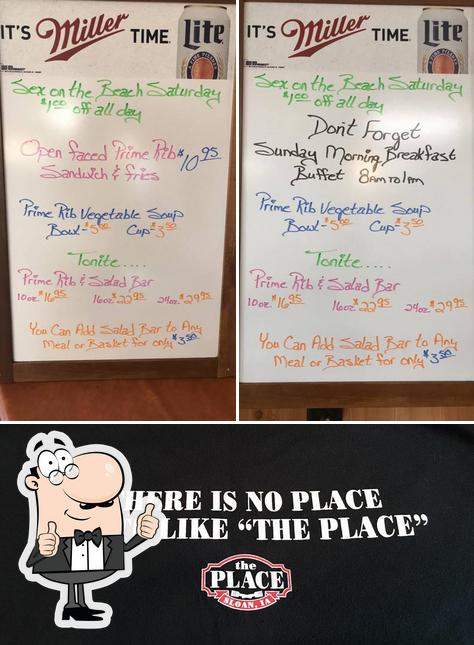 IT'S Miller TIME.
Lite
A FINE PILSNER
Sex on the Beach Saturday
$1.00 off all day
Open Faced Prime Rib $10.95
Sandwich & Fries
Prime Rib Vegetable Soup
Bowl-$5.00 Cup-$3.50
Tonite.....
Prime Rib & Salad Bar
10oz $16.95 16oz $22.95 24oz $29.95
You Can Add Salad Bar to Any
Meal or Basket for only $3.50
IT'S Miller TIME.
Lite
A FINE PILSNER
Sex on the Beach Saturday
$1.00 off all day
Don't Forget
Sunday Morning Breakfast
Buffet 8am to 1pm
Prime Rib Vegetable Soup
Bowl-$5.00 Cup-$3.50
Tonite.....
Prime Rib & Salad Bar
10oz $16.95 16oz $22.95 24oz $29.95
You Can Add Salad Bar to Any
Meal or Basket for only $3.50
HERE IS NO PLACE
LIKE "THE PLACE"
the
PLACE
SLOAN, IA